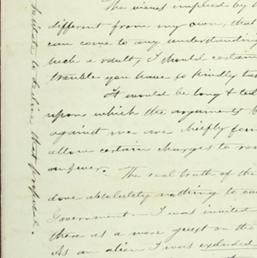 The views implied by
different from my own, that
can come to any understanding
such a result, I should certain
trouble you have so kindly ta
It would be long & ted
upon which the arguments
against me are chiefly foun
allow certain charges to
answer. The real truth of the
done absolutely nothing to
Government - I was invited
there as a mere guest on the
As an alien I was excluded
to decline that proposal.